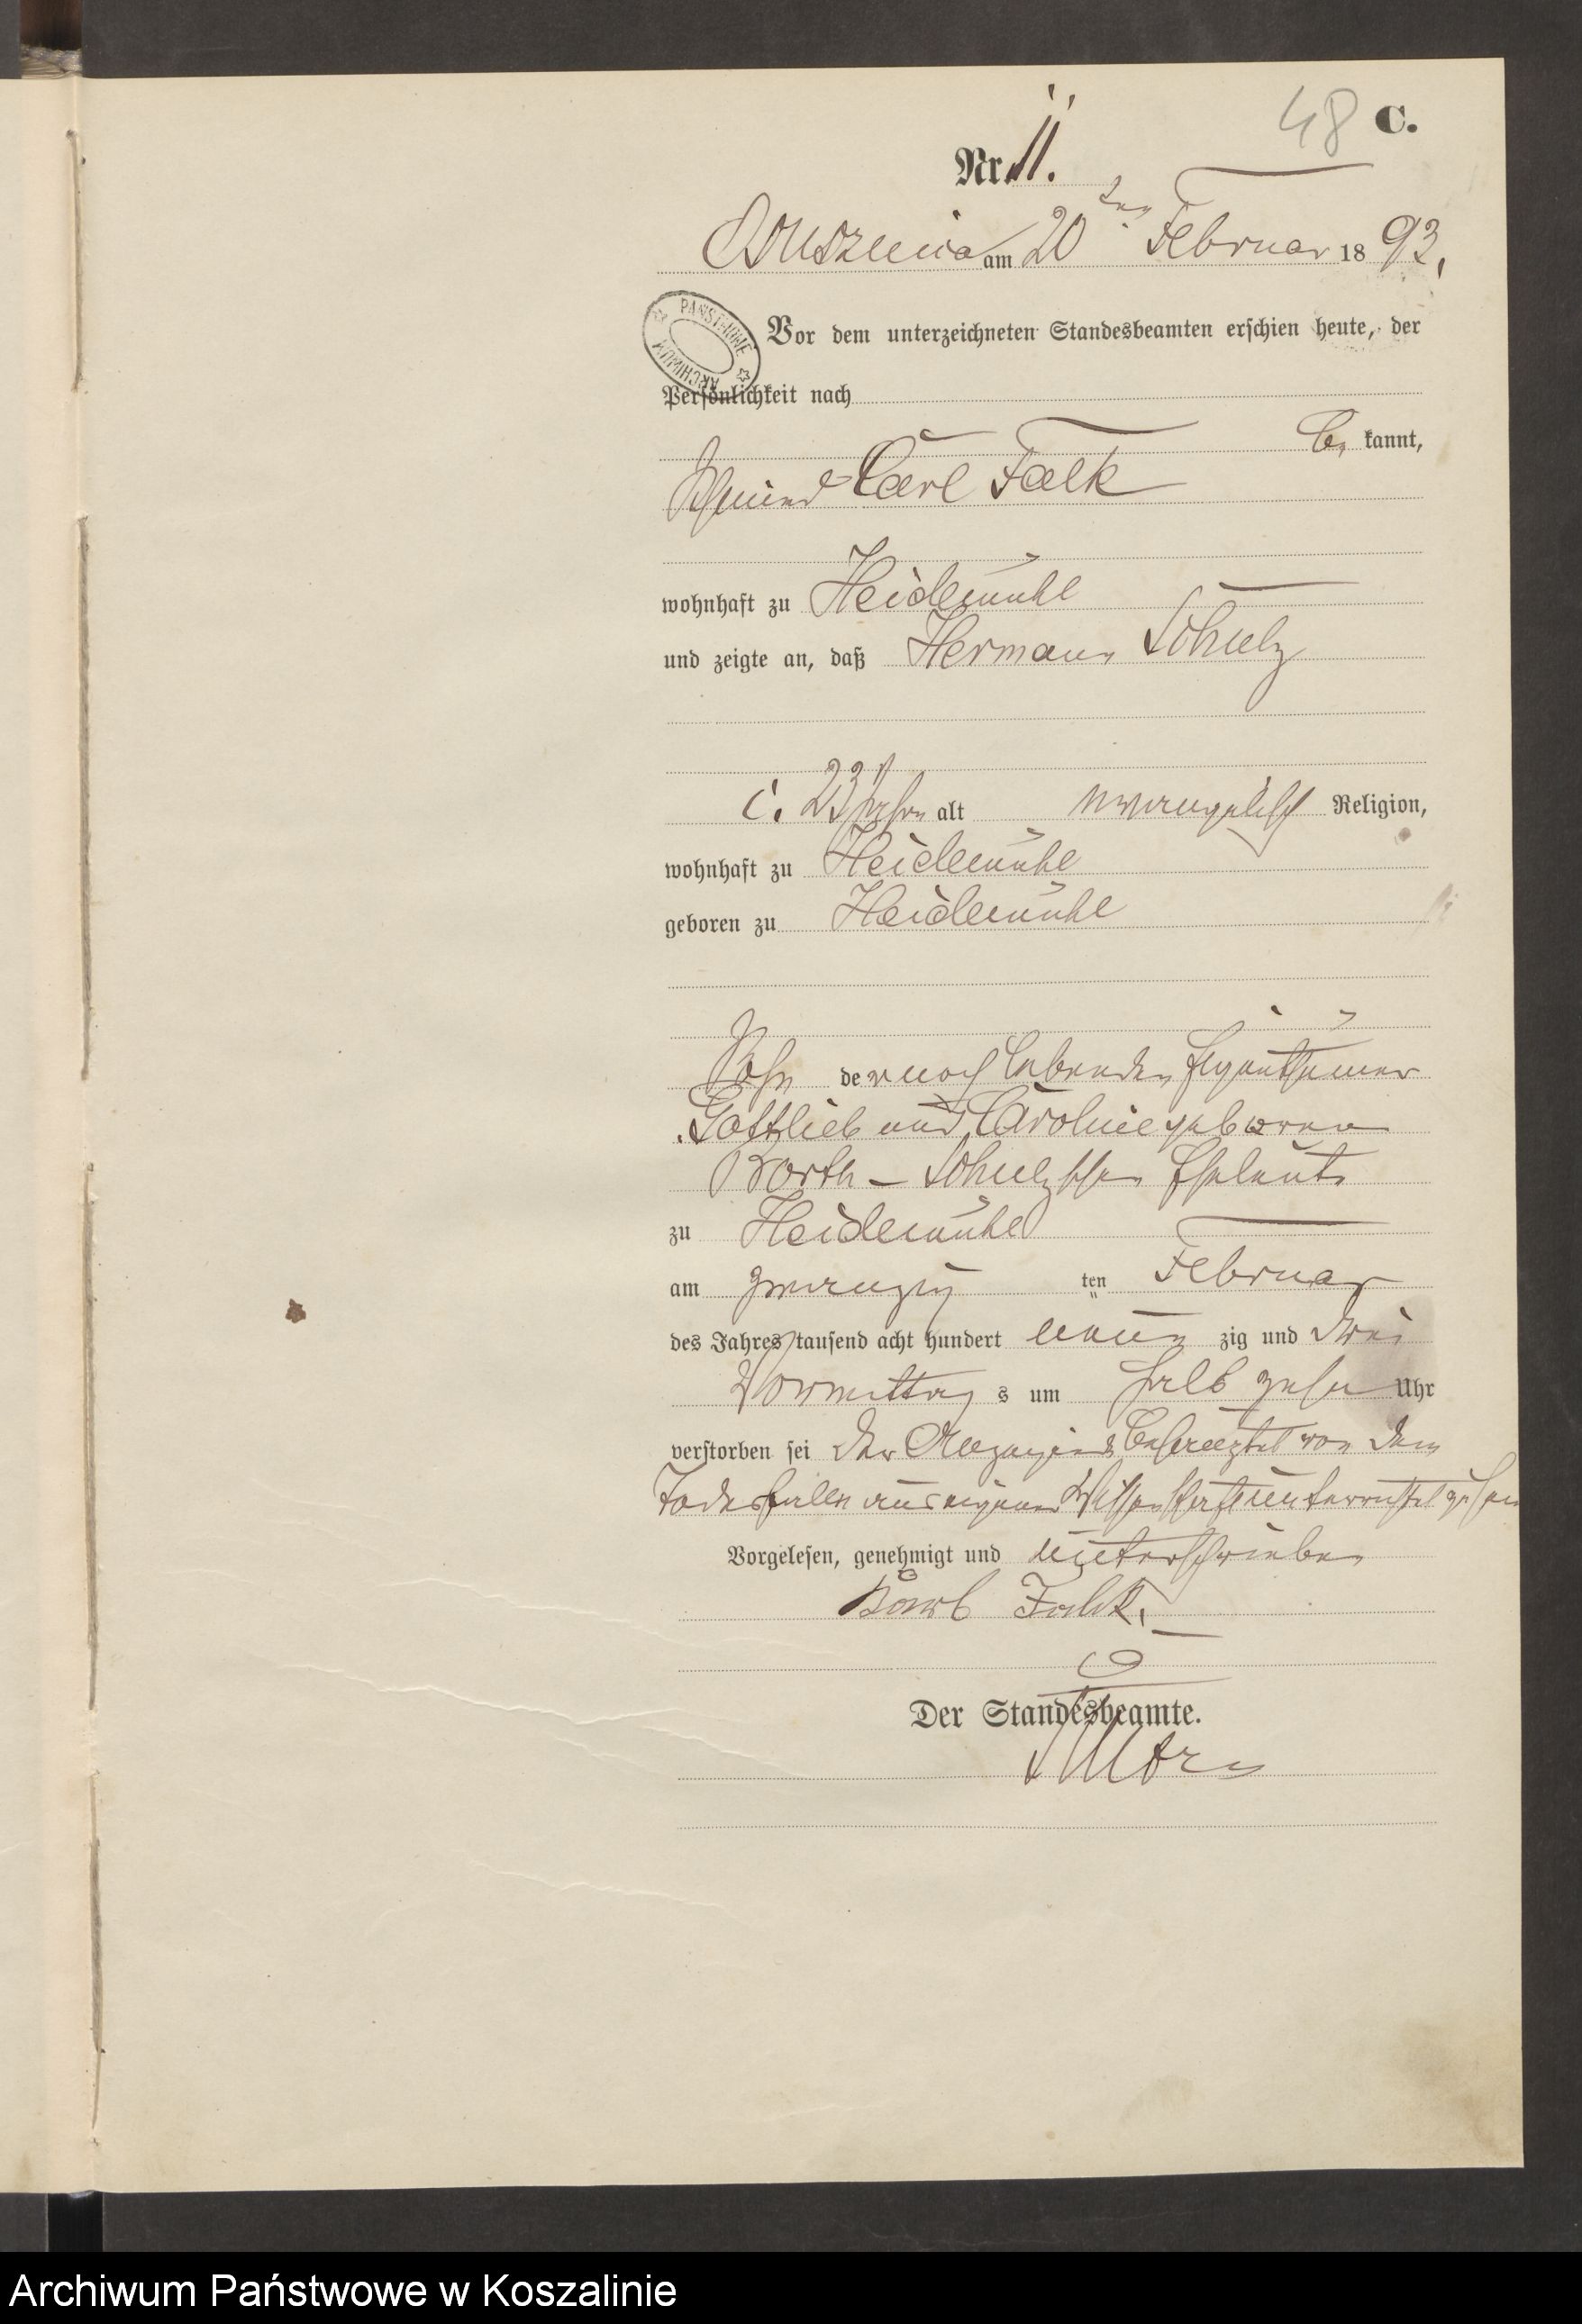 48 C.
Nr. 11.
am 20ten Februar 1893.
PAŃSTWOWE ARCHIWUM
Vor dem unterzeichneten Standesbeamten erschien heute, der
Persönlichkeit nach
be kannt,
Schmied Carl Falk
wohnhaft zu Heidemühl
und zeigte an, daß Hermann Schulz
c. 23 Jahre alt evangelisch Religion,
wohnhaft zu Heidemühl
geboren zu Heidemühl
Sohn der noch lebenden Eigenthümer
Gottlieb und Caroline geborenen
Borth - Schulzschen Eheleute
zu Heidemühl
am zwanzig ten Februar
des Jahres tausend acht hundert neun zig und drei
Vormittag s um halb zehn Uhr
verstorben sei der Anzeigende von dem
Todesfalle aus eigener Wissenschaft unterrichtet zu sein
Vorgelesen, genehmigt und unterschrieben
Karl Falk.
Der Standesbeamte.
Archiwum Państwowe w Koszalinie